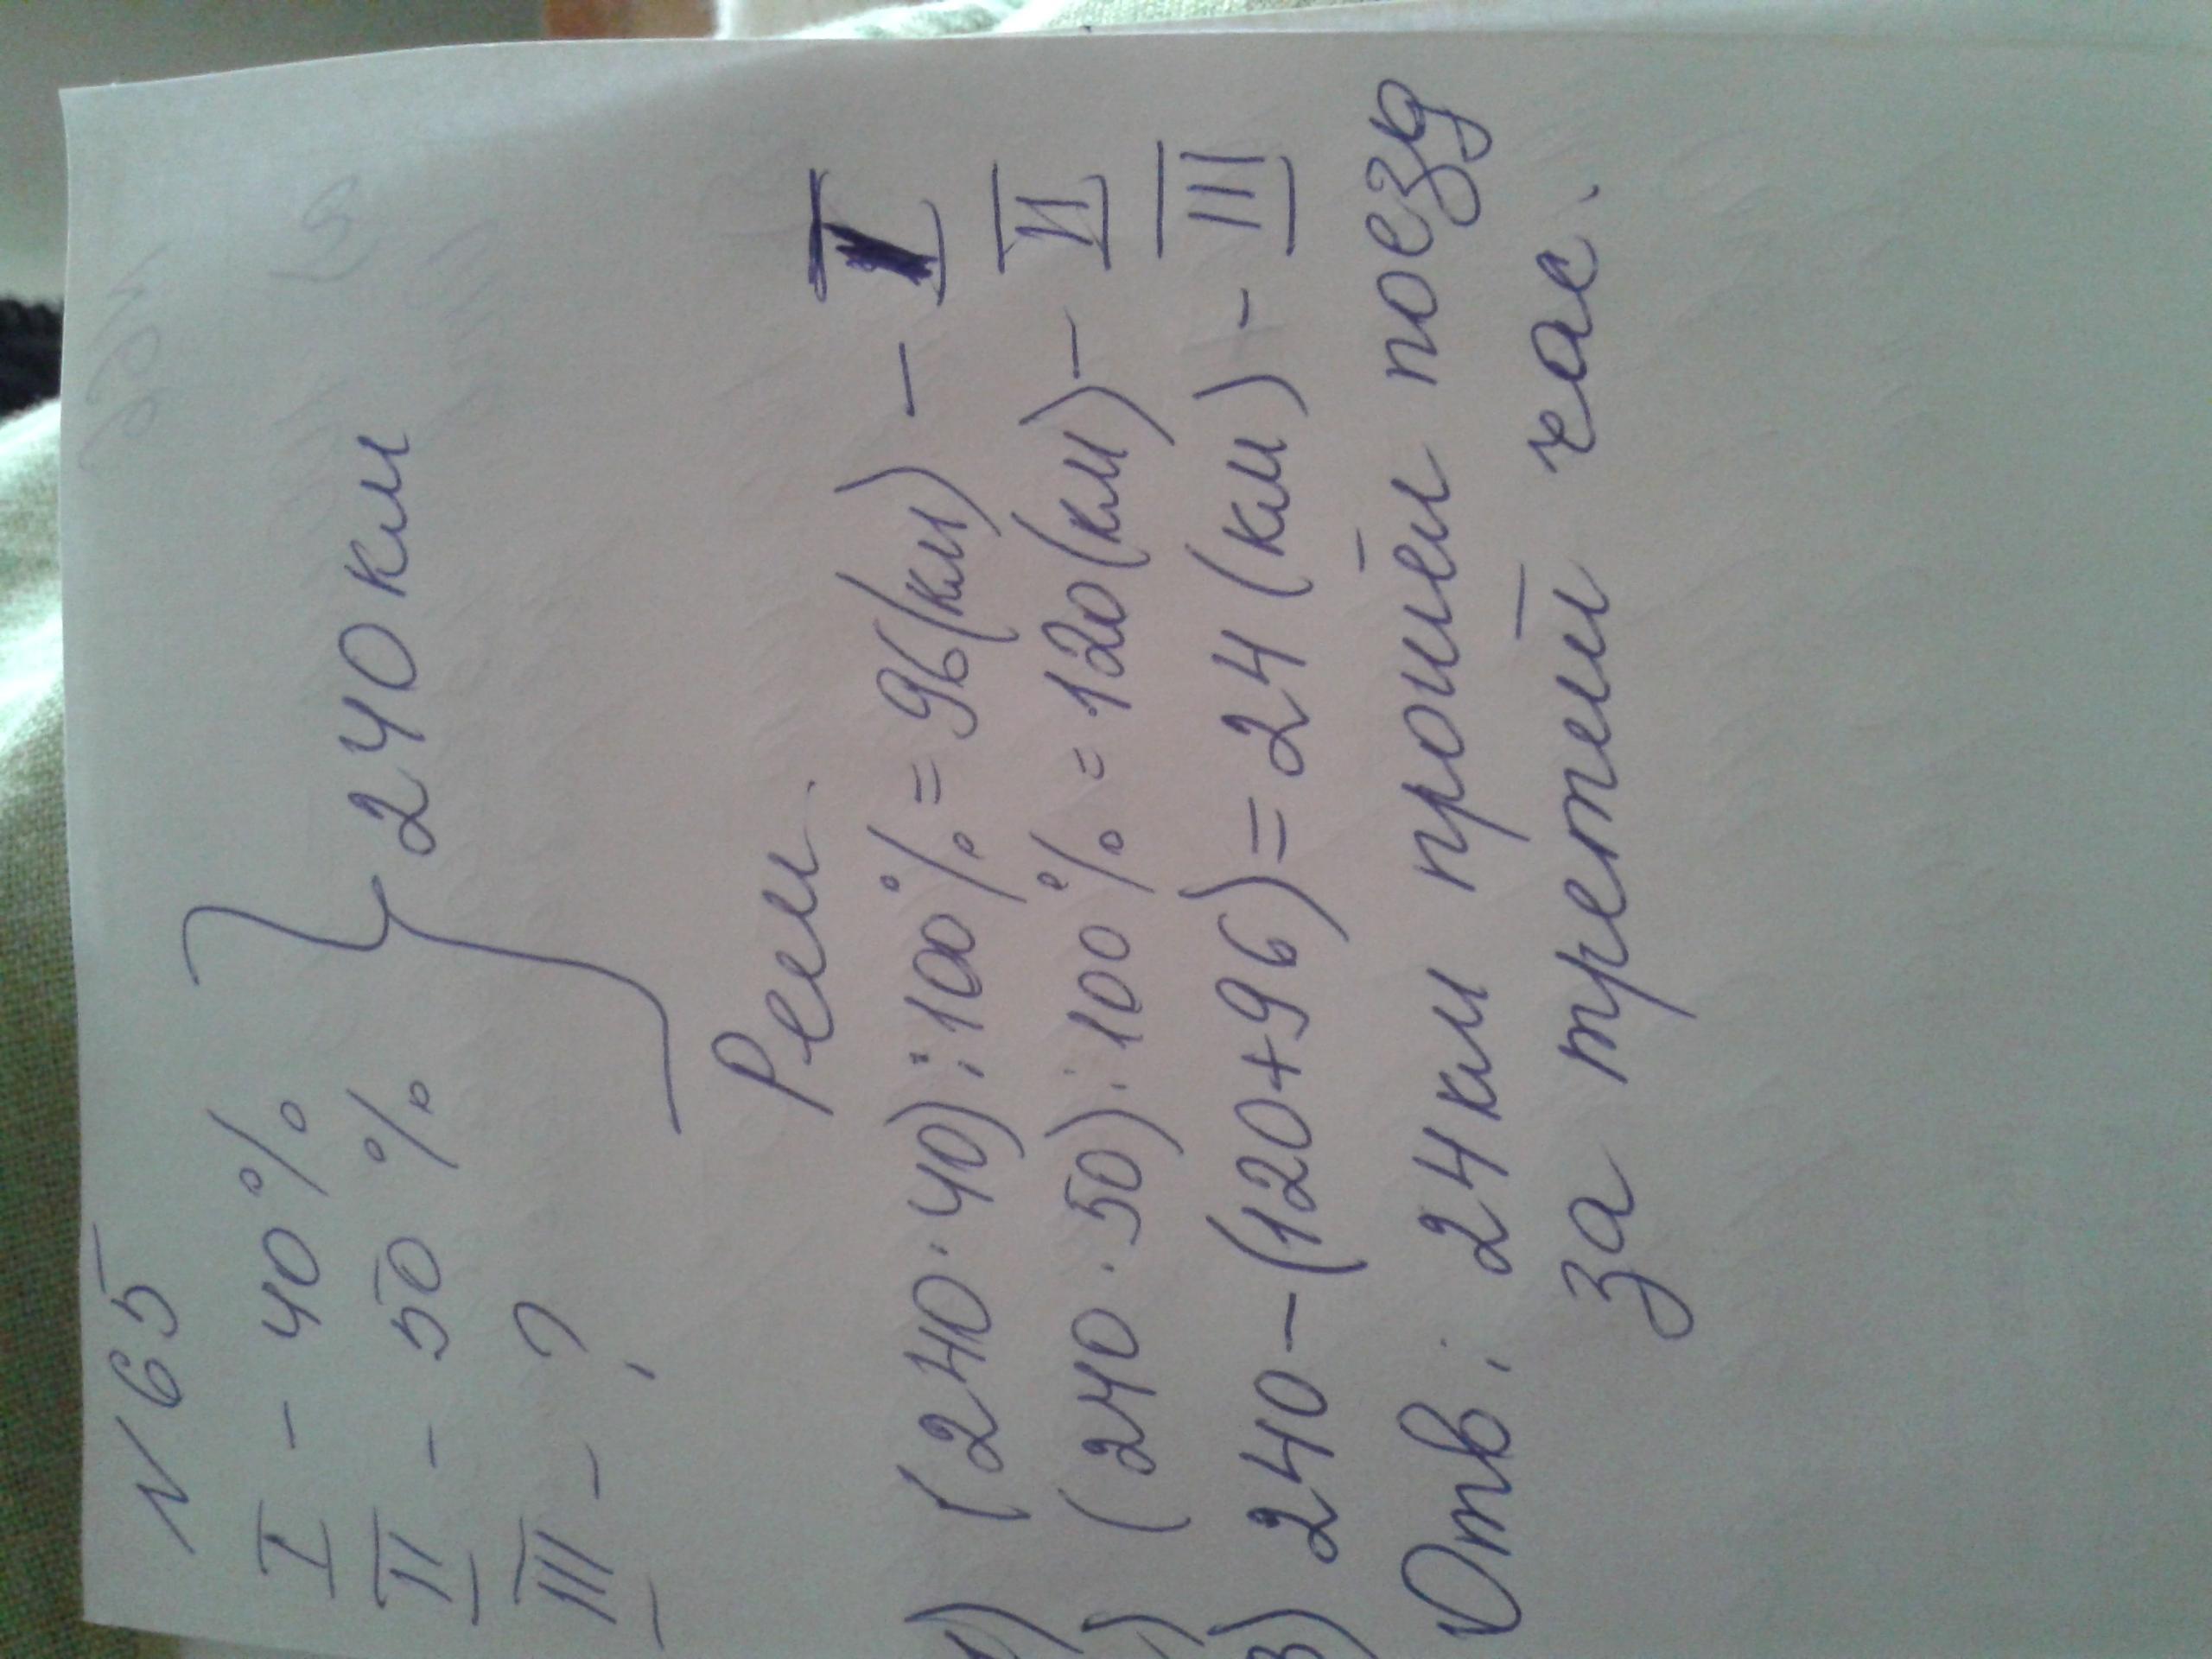 N 65
I - 40%
II - 50%
240 км
III - ?
Реш.
1) (240·40):100% = 96(км) - I
) (240·50):100% = 120(км) - II
3) 240-(120+96)=24(км) - III
Отв: 24км прошёл поезд
за третий час.